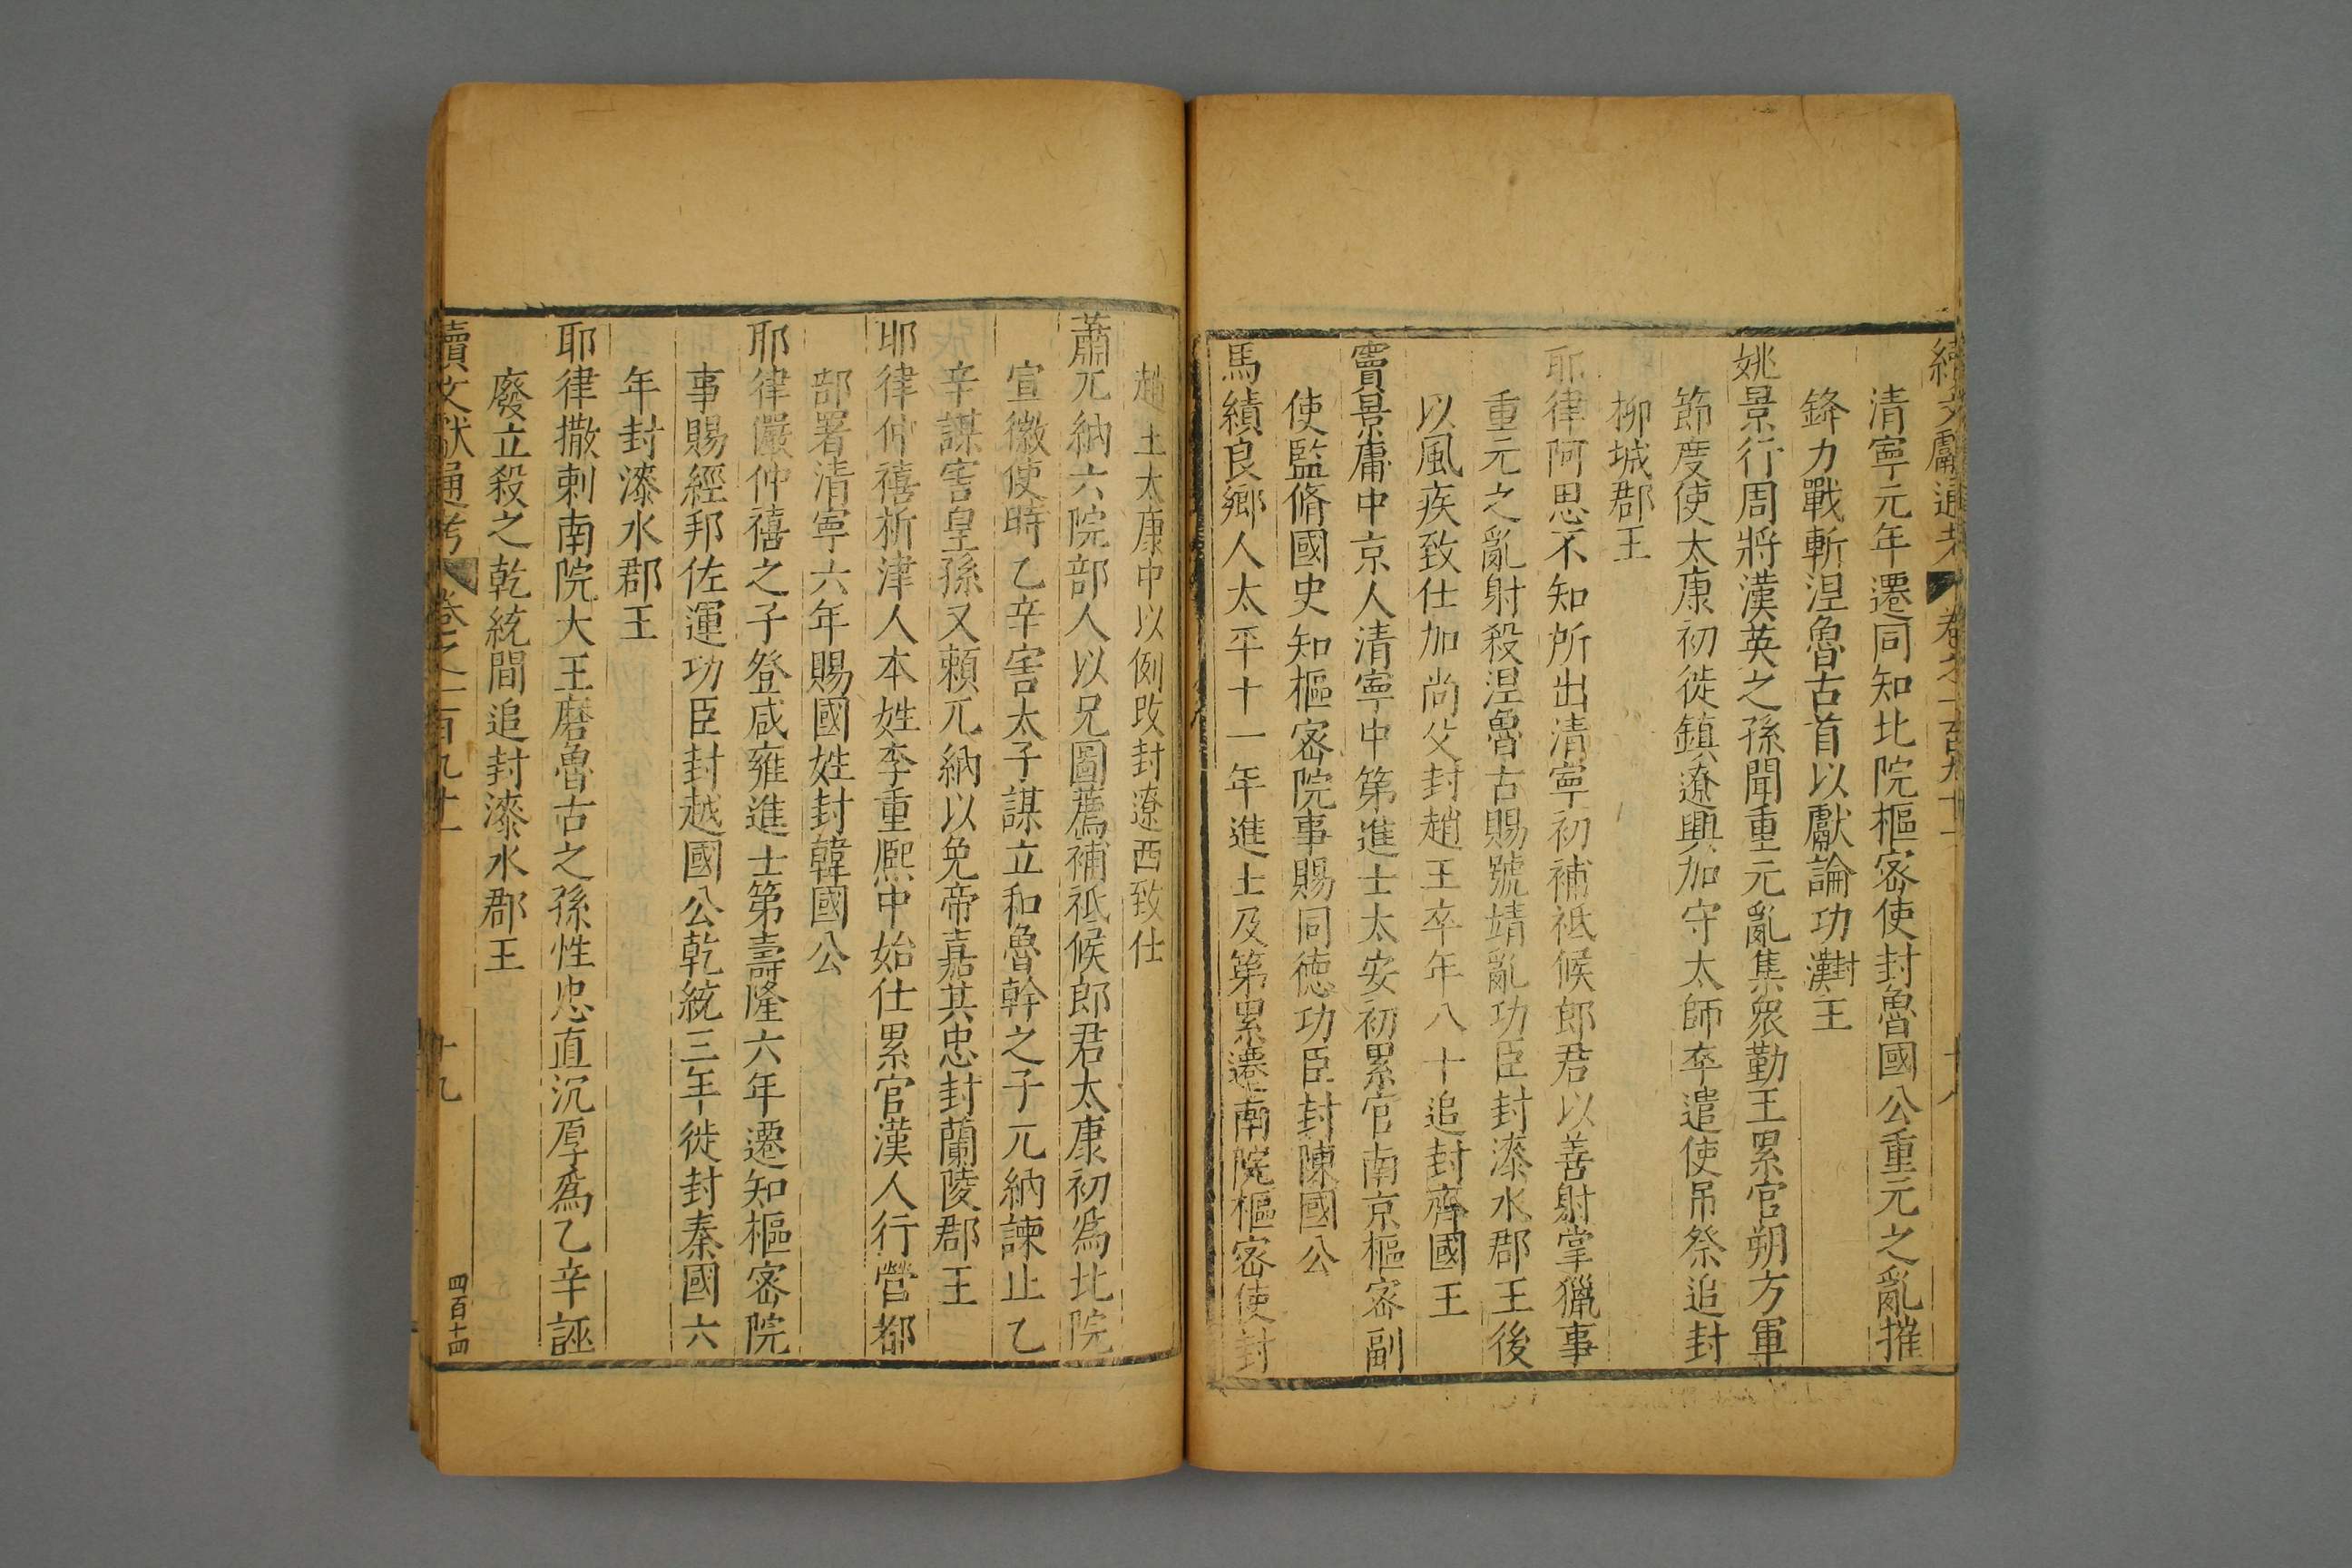 續文獻通考 卷之一百九十一 十八
清寧元年遷同知北院樞密使封魯國公重元之亂摧
鋒力戰斬涅魯古首以獻論功封漢王
姚景行周將漢英之孫聞重元亂集衆勤王累官朔方軍
節度使太康初徙鎮遼興加守太師卒遣使吊祭追封
柳城郡王
耶律阿思不知所出清寧初補祗候郎君以善射掌獵事
重元之亂射殺涅魯古賜號靖亂功臣封漆水郡王後
以風疾致仕加尚父封趙王卒年八十追封齊國王
竇景庸中京人清寧中第進士太安初累官南京樞密副
使監脩國史知樞密院事賜同德功臣封陳國公
馬績良鄉人太平十一年進士及第累遷南院樞密使封
趙王太康中以例改封遼西致仕
蕭兀納六院部人以兄圖薦補祗候郎君太康初爲北院
宣徽使時乙辛害太子謀立和魯斡之子兀納諫止乙
辛謀害皇孫又賴兀納以免帝嘉其忠封蘭陵郡王
耶律仲禧析津人本姓李重熈中始仕累官漢人行營都
部署清寧六年賜國姓封韓國公
耶律儼仲禧之子登咸雍進士第壽隆六年遷知樞密院
事賜經邦佐運功臣封越國公乾統三年徙封秦國六
年封漆水郡王
耶律撒剌南院大王磨魯古之孫性忠直沉厚爲乙辛誣
廢立殺之乾統間追封漆水郡王
續文獻通考 卷之一百九十一 十九 四百十四